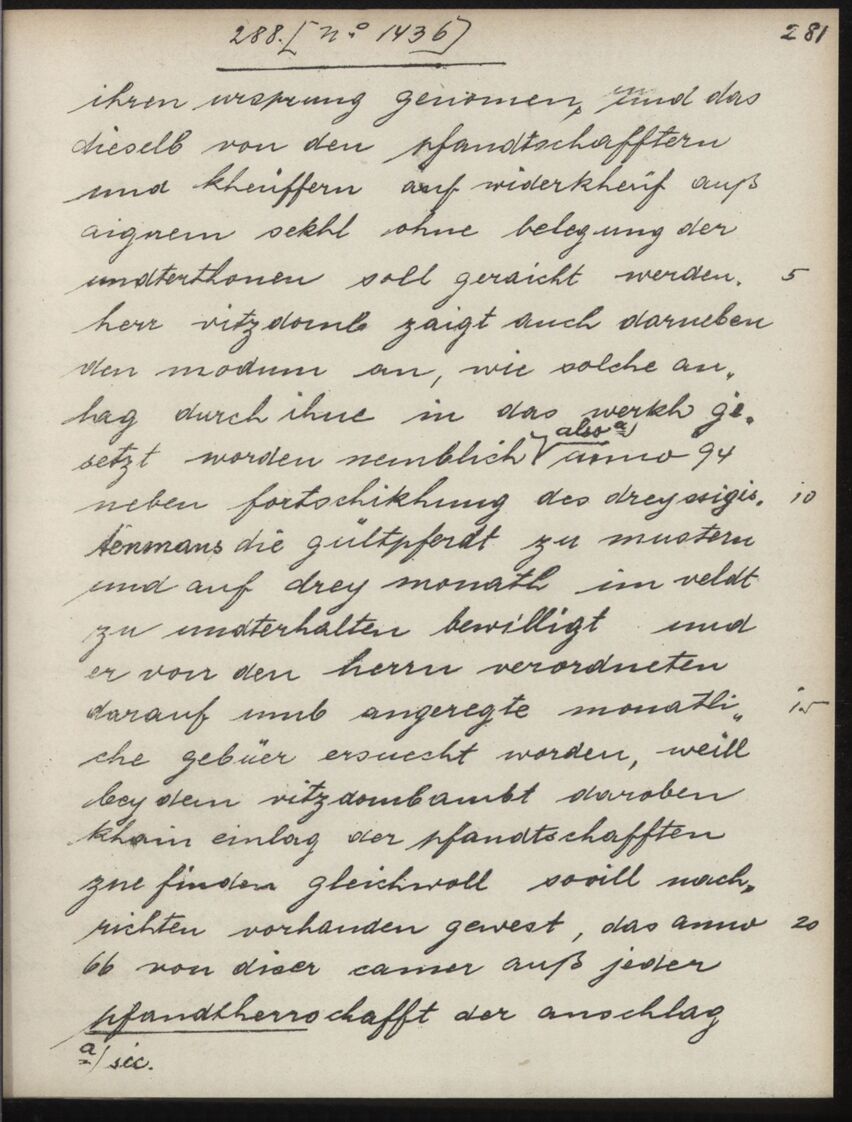 288. [N.° 1436]
281
ihren ursprung genomen, und das
dieselb von den pfandtschafftern
und kheüffern auf widerkheüf auß
aignem sekhl ohne belegung der
undterthonen soll geraicht werden. 5
herr vitzdomb zaigt auch darneben
den modum an, wie solche an„
lag durch ihne in das werkh ge„
setzt worden nemblich also a) anno 94
neben fortschikhung des dreyssigis„ 10
tenmans die gültpferdt zu mustern
und auf drey monath im veldt
zu undterhalten bewilligt und
er von den herrn verordneten
darauf umb angeregte monatli„ 15
che gebüer ersuecht worden, weill
bey dem vitzdombambt daroben
khain einlag der pfandtschafften
zue finden gleichwoll sovill nach„
richten vorhanden gewest, das anno 20
66 von diser camer auß jeder
pfandtherrschafft der anschlag
a) sic.